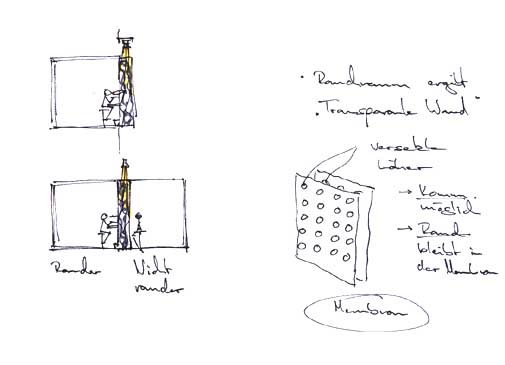 Raucher
Nicht
raucher
• Rauchraum ergibt
„Transparente Wand"
versetzte
Löcher
→ Komm.
möglich
→ Rauch
bleibt in
der Membran
Membran